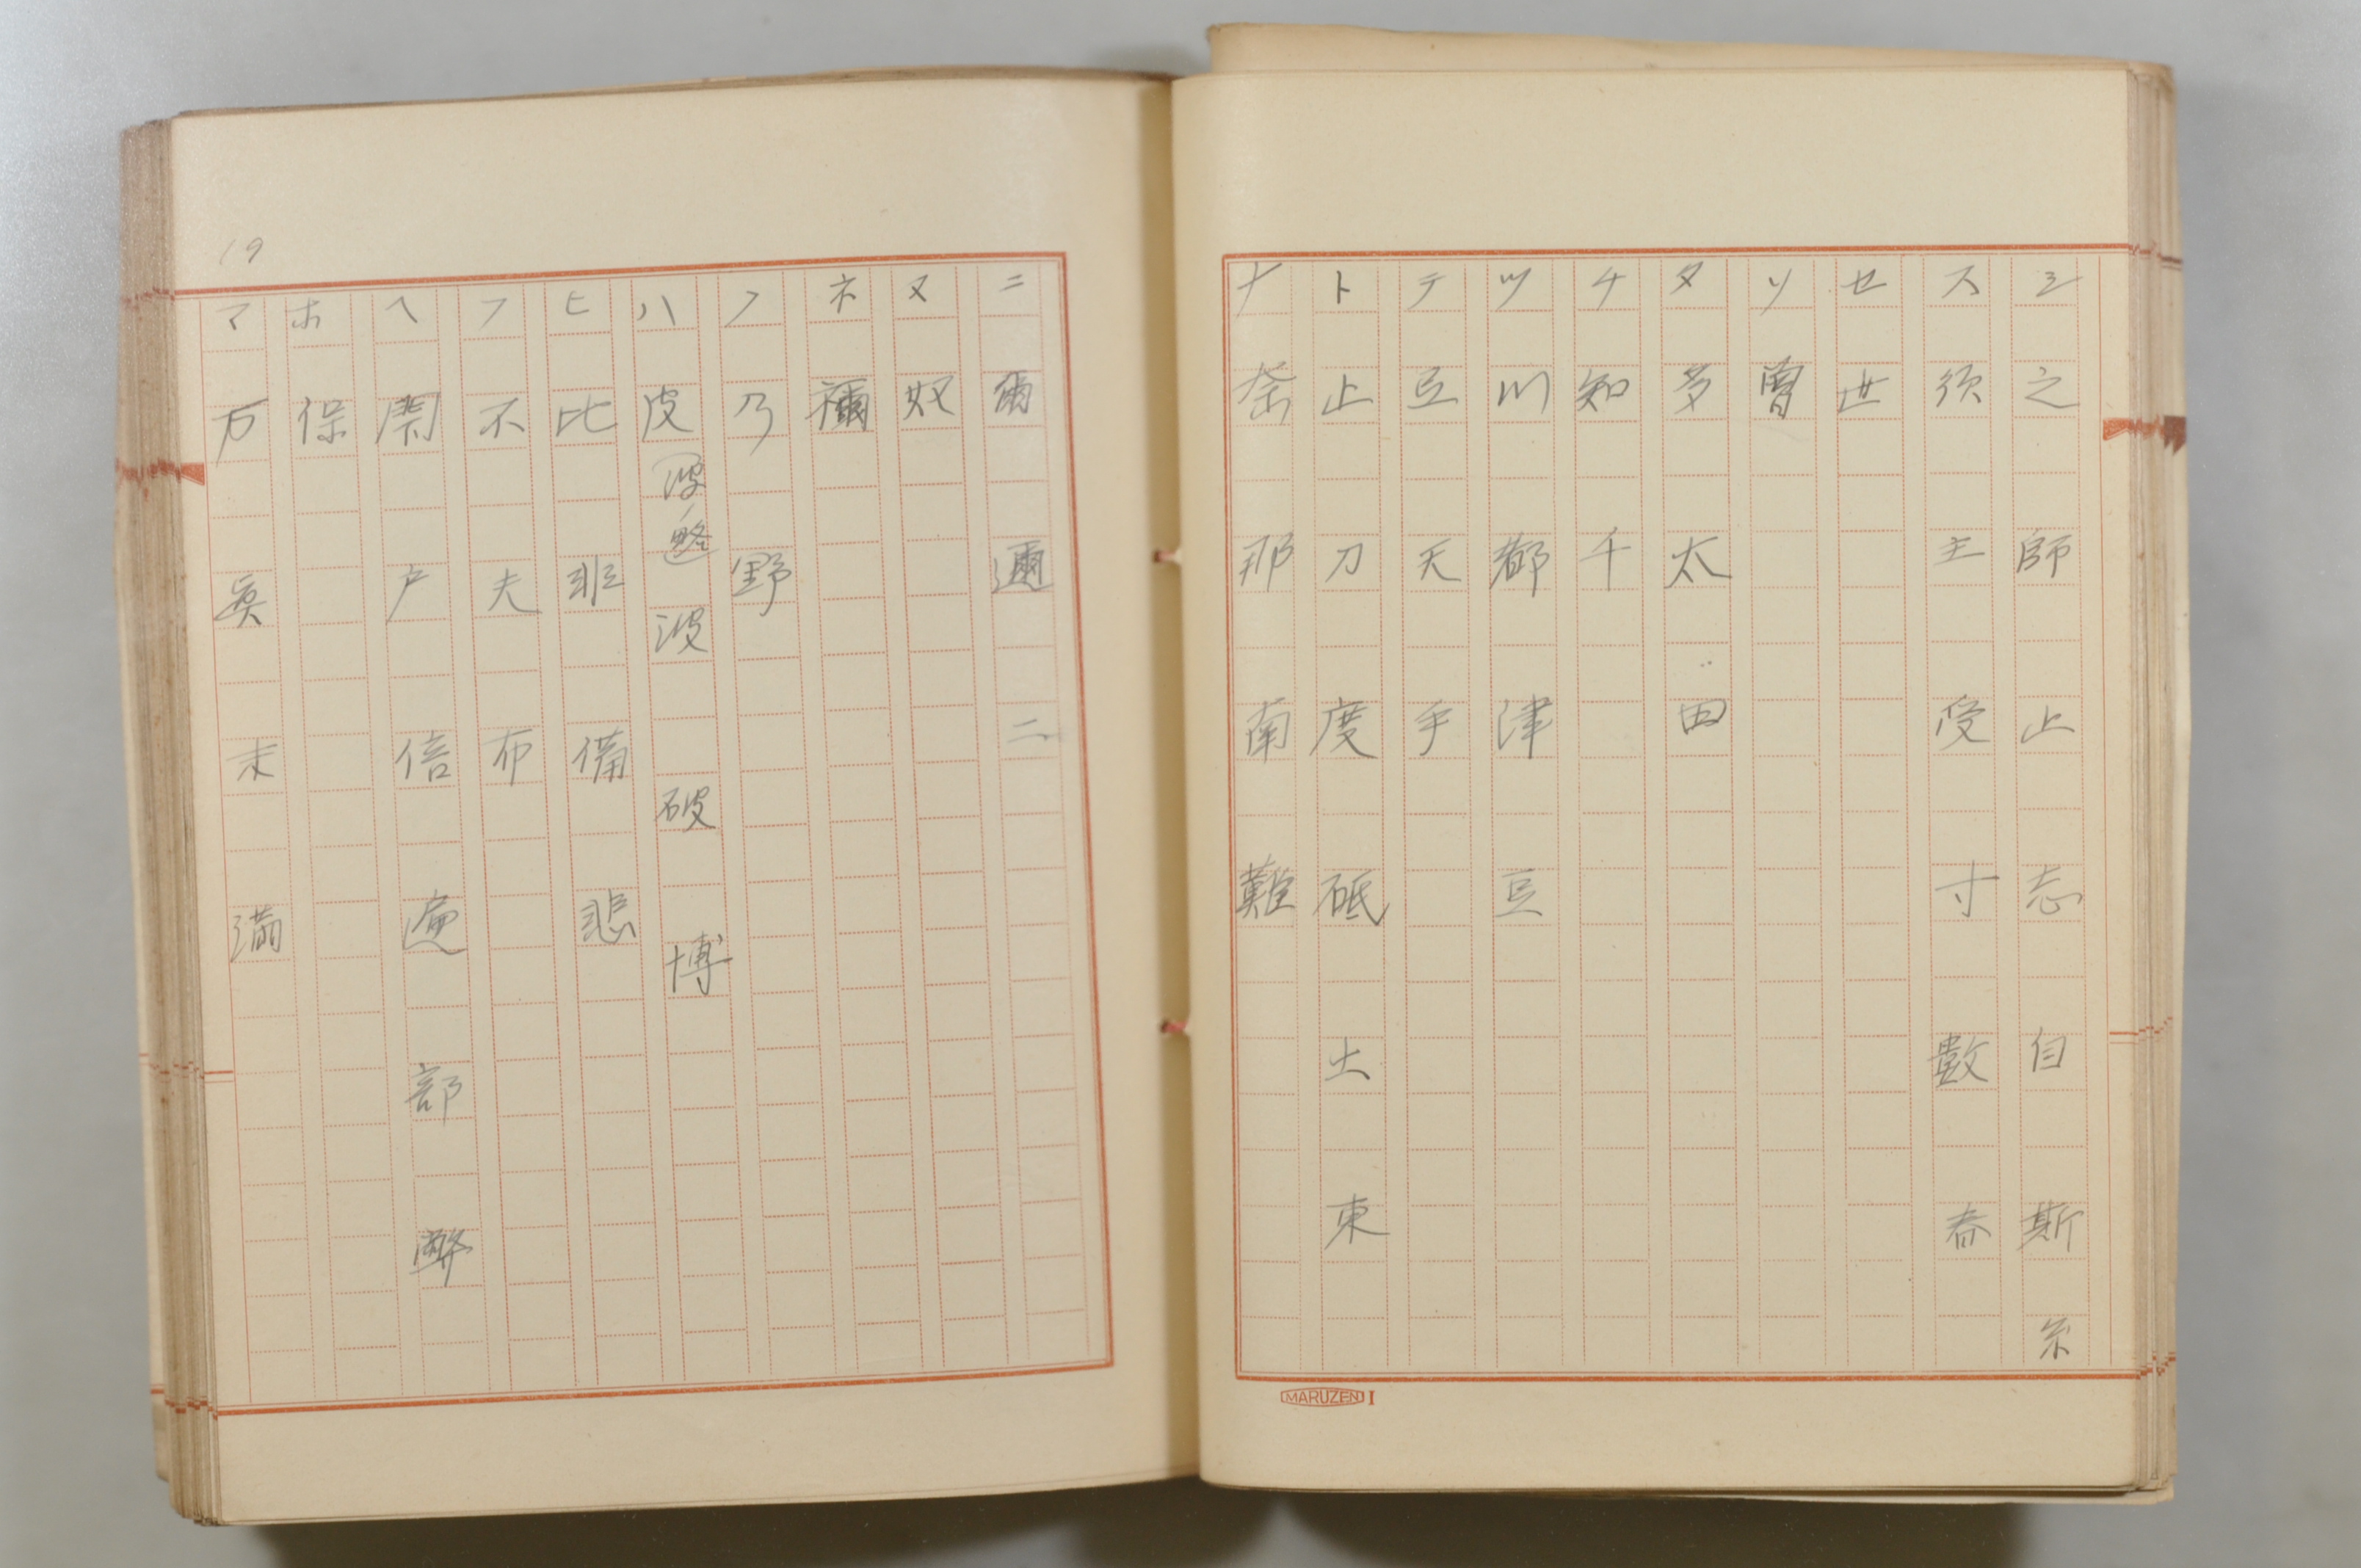 シ 之 師 止 志 自 斯
ス 須 主 受 寸 數 春
セ 世
ソ 曽
タ 多 太 田
チ 知 千
ツ 川 都 津 豆
テ 豆 天 手
ト 止 刀 度 砥 土 東
ナ 奈 那 南 難
MARUZEN I
19
ニ 爾 邇 二
ヌ 奴
ネ 禰
ノ 乃 野
ハ 皮 波ノ略 波 破 博
ヒ 比 非 備 悲
フ 不 夫 布
ヘ 閇 戸 倍 遍 部 弊
ホ 保
マ 万 末 満